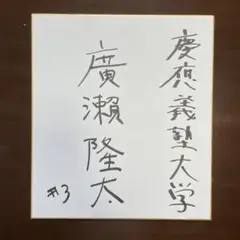 慶應義塾大学
廣瀨隆太
#3